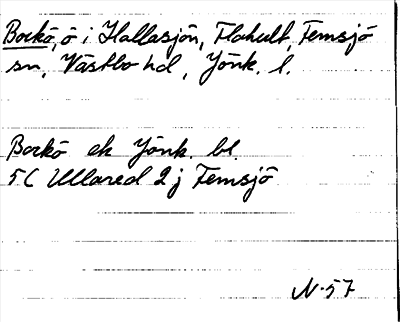 Borkö, ö i Hallasjön, Flahult, Femsjö
sn, Västbo hd, Jönk. l.
Borkö ek Jönk. bl.
5C Ullared 2j Femsjö
N-57